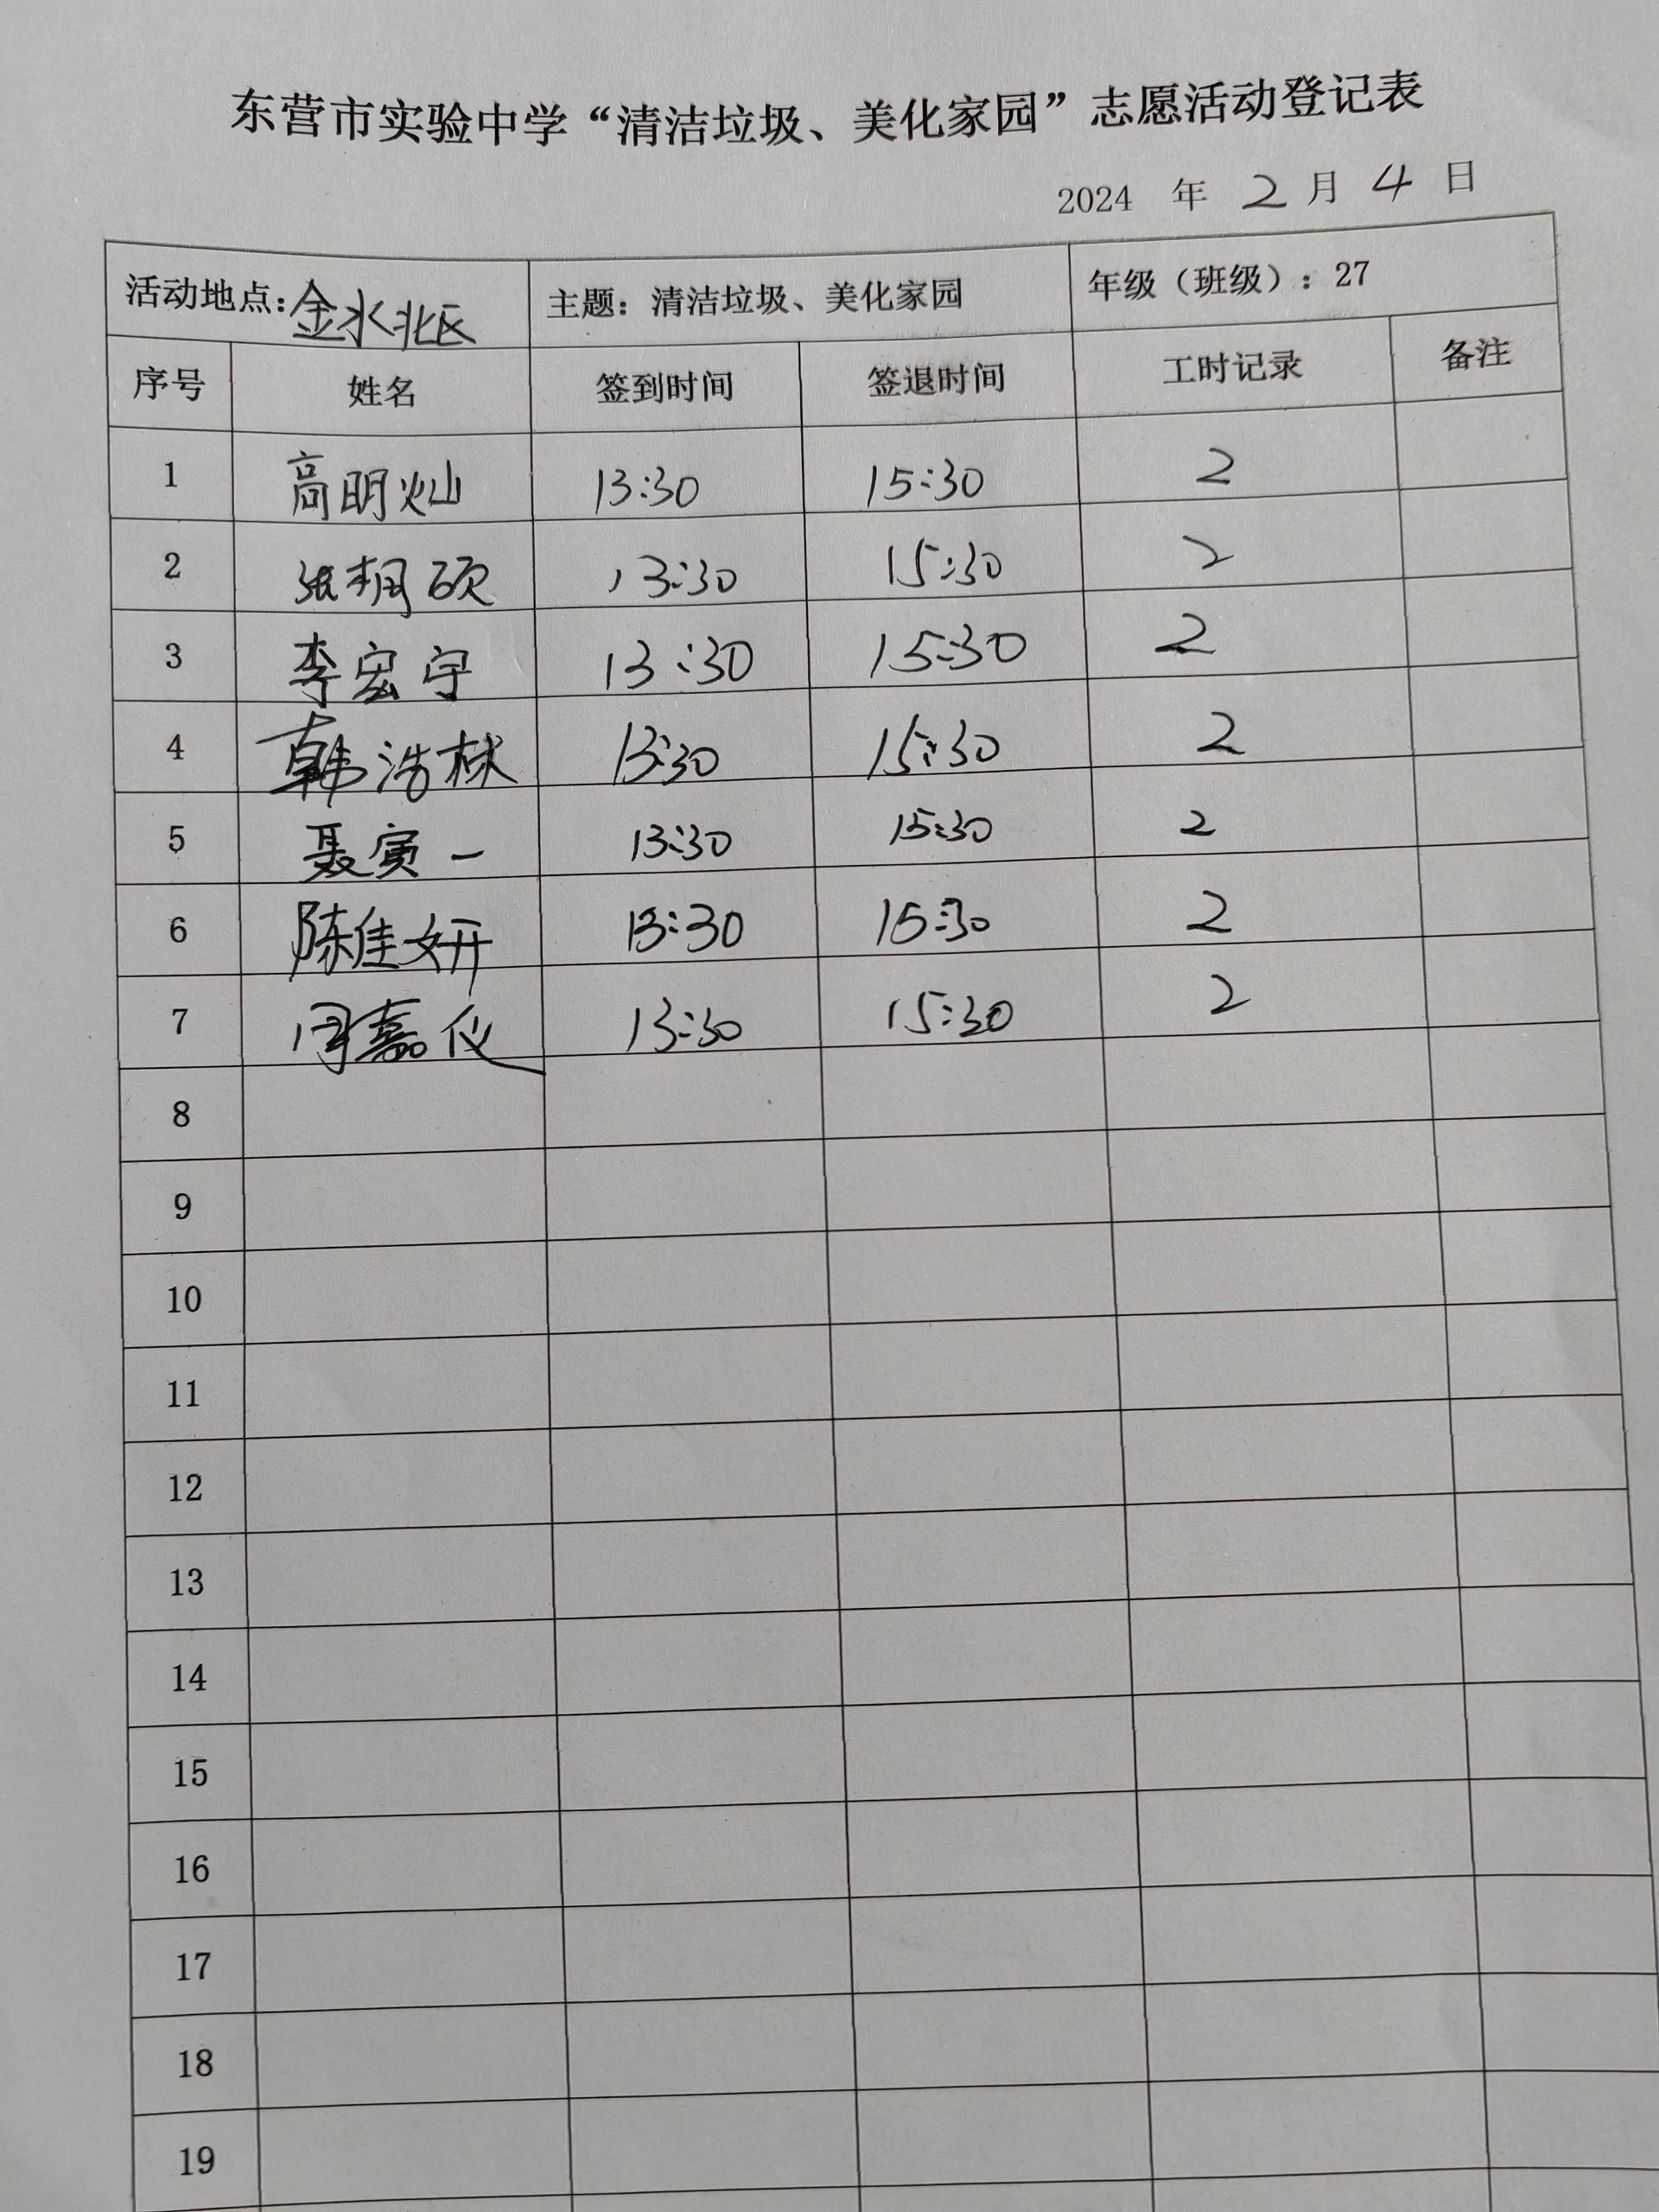 东营市实验中学“清洁垃圾、美化家园”志愿活动登记表
2024 年 2 月 4 日
活动地点：金水北区 主题：清洁垃圾、美化家园 年级（班级）：27
序号 姓名 签到时间 签退时间 工时记录 备注
1 高明灿 13:30 15:30 2
2 张翔硕 13:30 15:30 2
3 李宏宇 13:30 15:30 2
4 韩浩林 13:30 15:30 2
5 聂寅一 13:30 15:30 2
6 陈佳妍 13:30 15:30 2
7 闫嘉仪 13:30 15:30 2
8
9
10
11
12
13
14
15
16
17
18
19